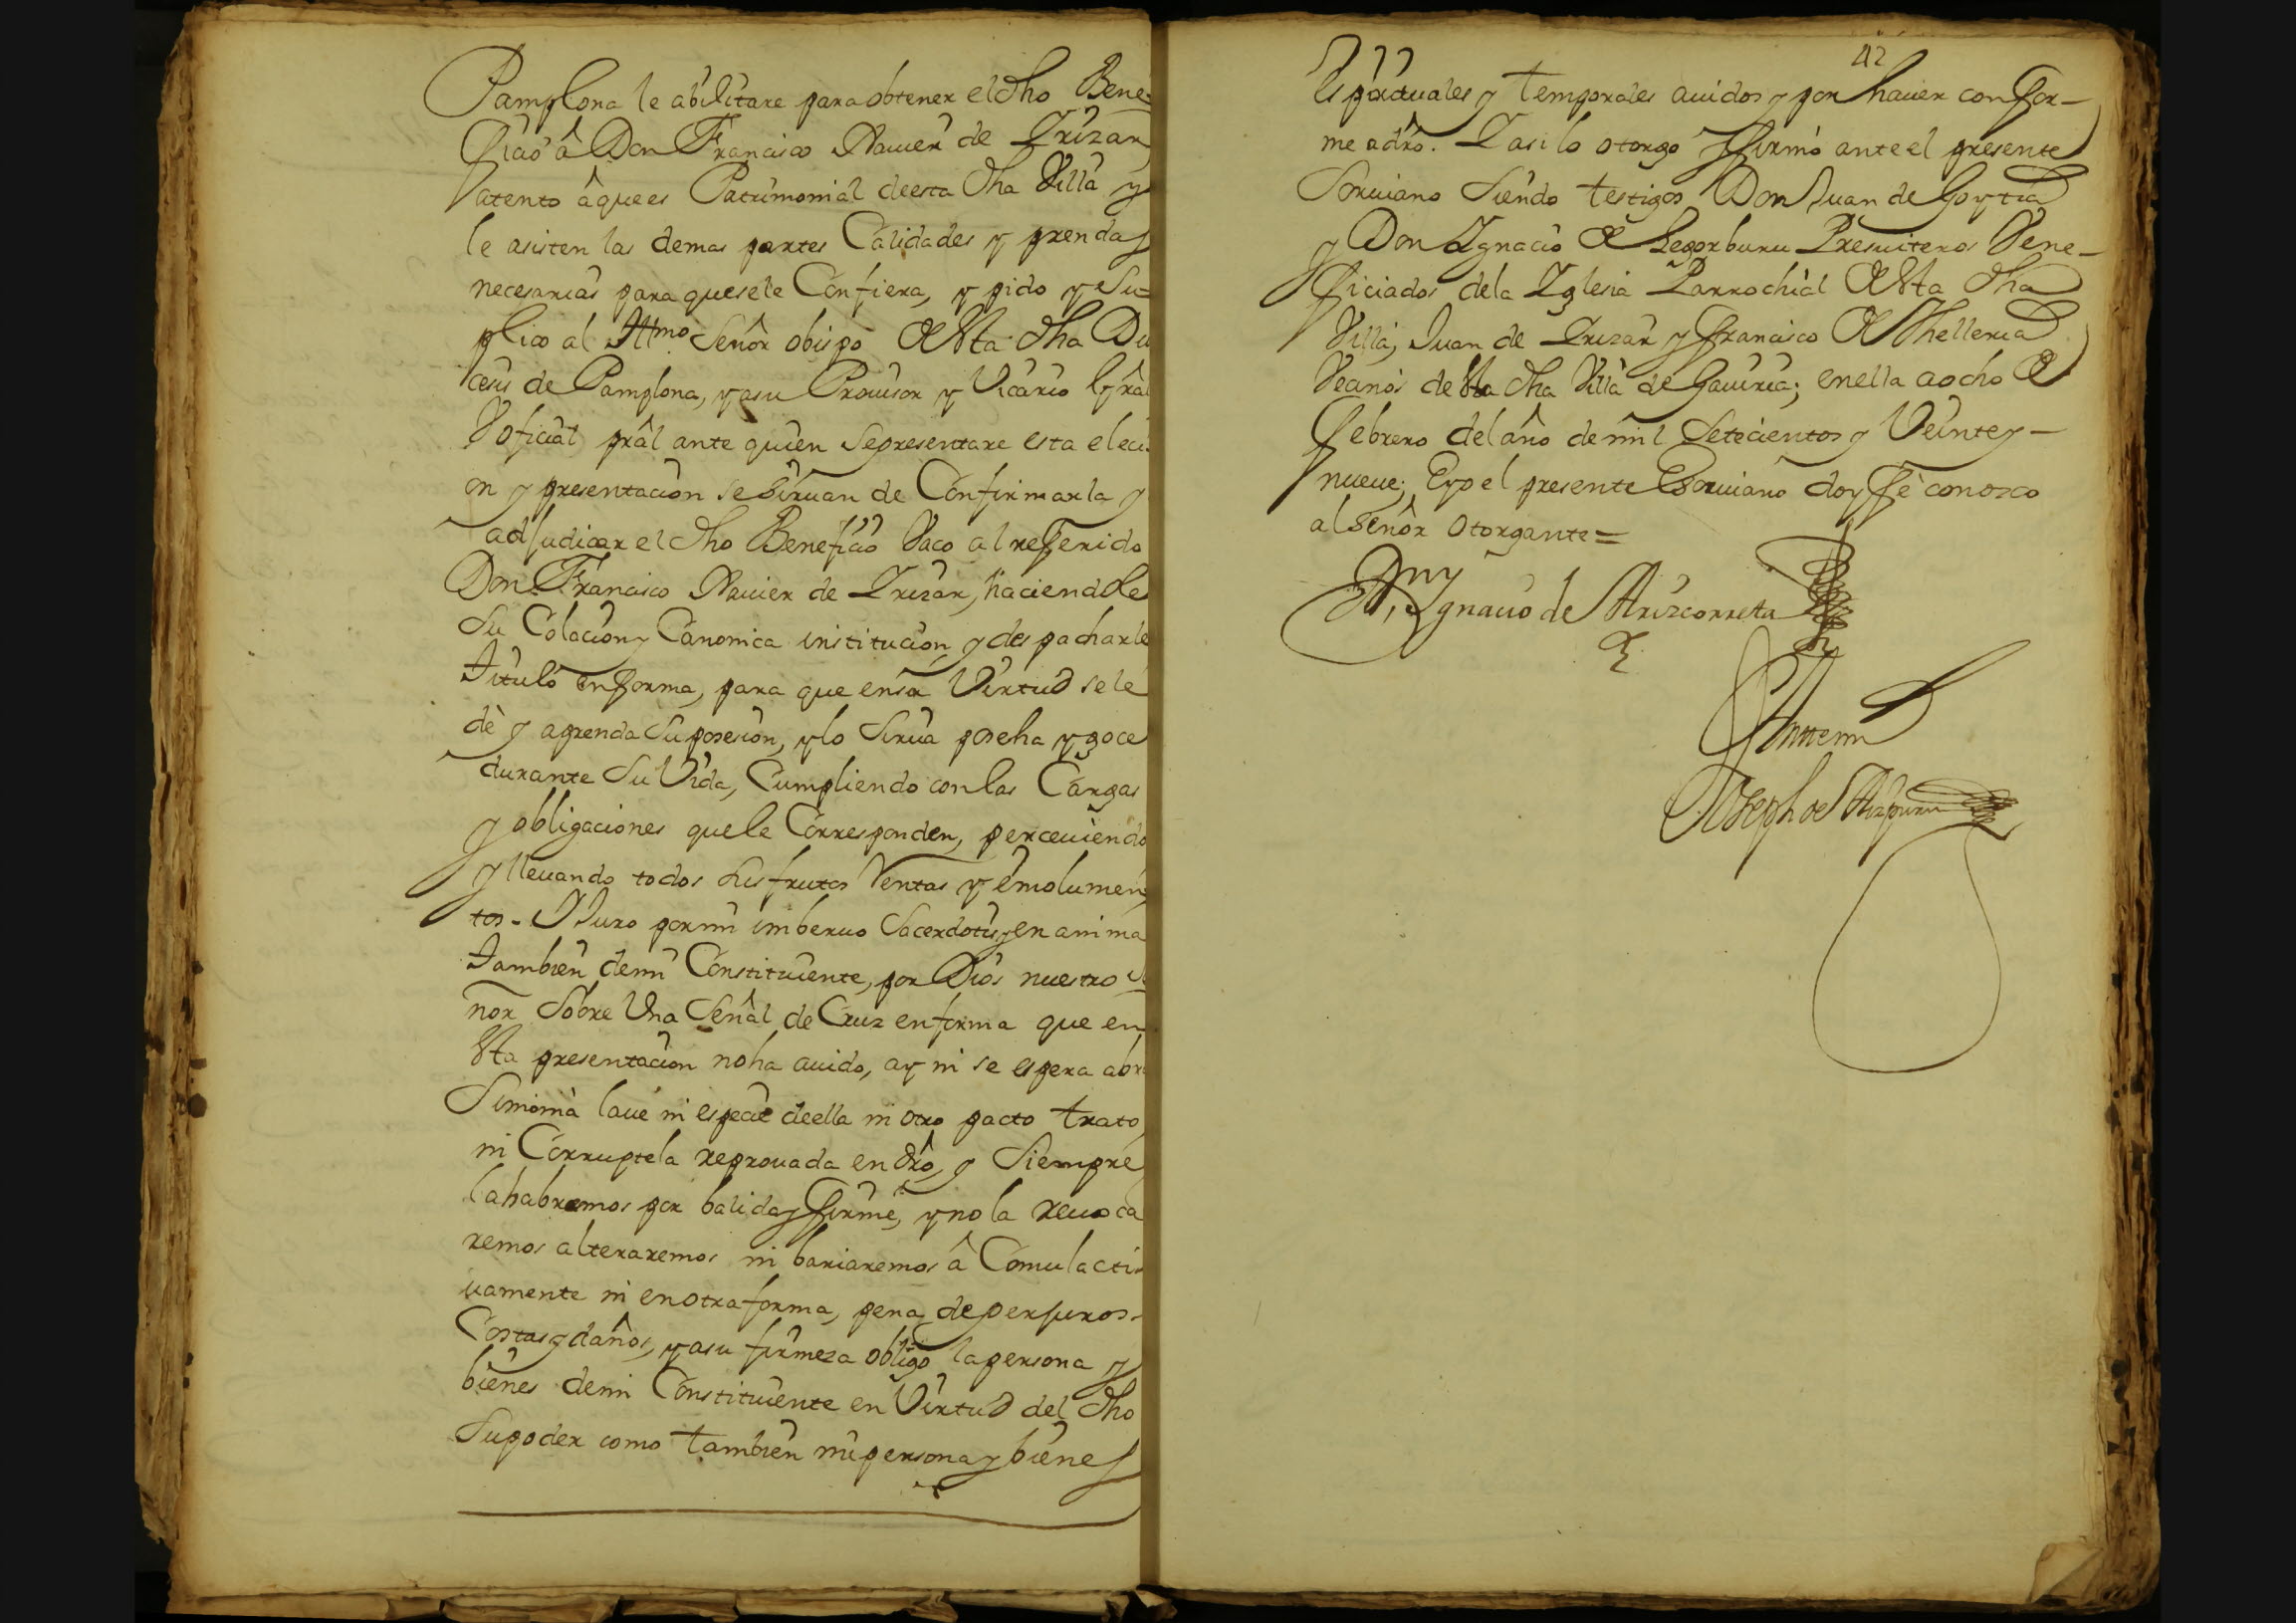 Pamplona le abilitare para obtener el dho Bene-
ficio â Don Francisco Xauier de Yrizar,
atento âque es Patrimonial de esta dha Villa y
le asisten las demas partes Calidades y prendas
necesarias para que se le Confiera, y pido y Su-
plico al Illmo Señor obispo de esta dha Dio
cesis de Pamplona, y asu Prouisor y Vicario Gral
V oficial prâl ante quien Se presentare esta eleci-
on y presentacion se Siruan de Confirmarla y
adjudicar el dho Beneficio Vaco al referido
Don Francisco Xauier de Yrizar, haciendole
Su Colacion y Canonica institucion y despacharle
Titulo en forma, para que en su Virtud se le
dè y aprenda Su posesion, y lo Sirua poseha y goce
durante Su Vida, Cumpliendo con las Cargas
y obligaciones que le Corresponden, perceuiendo
y lleuando todos sus frutos Rentas y emolumen-
tos - Y Juro por mi in beruo Sacerdotis, y en anima
Tambien de mi Constituiente, por Dios nuestro Se
ñor Sobre Vna Señal de Cruz en forma que en
esta presentacion no ha auido, ay ni se espera abra
Simonia laue ni especie de ella ni otro pacto trato,
ni Corruptela reprouada en dro, y Siempre
la habremos por balida y firme, y no la reuoca
remos alteraremos ni bariaremos â Comulacti-
uamente ni en otra forma, pena de perjuros -
Costas y daños, y asu firmeza obligo la persona y
bienes de mi Constituiente en Virtud del dho
Su poder como tambien mi persona y bienes
42
espirituales y temporales auidos y por hauer confor-
me a dro. Y asi lo otorgo y firmò ante el presente
Escriuano Siendo testigos Don Juan de Goytia
y Don Ygnacio de Legorburu Presuiteros Vene-
ficiados de la Yglesia Parrochial de esta dha
Villa, Juan de Yrizar y Francisco de Thelleria
Vecinos de esta dha Villa de Gauiria; en ella a ocho de
Febrero del año de mil Setecientos y Veinte y -
nueue; E yo el presente Escriuano doy fè conozco
al Señor otorgante =
Ygnacio de Arizcorreta
Ante mi
Joseph de Aizpuru